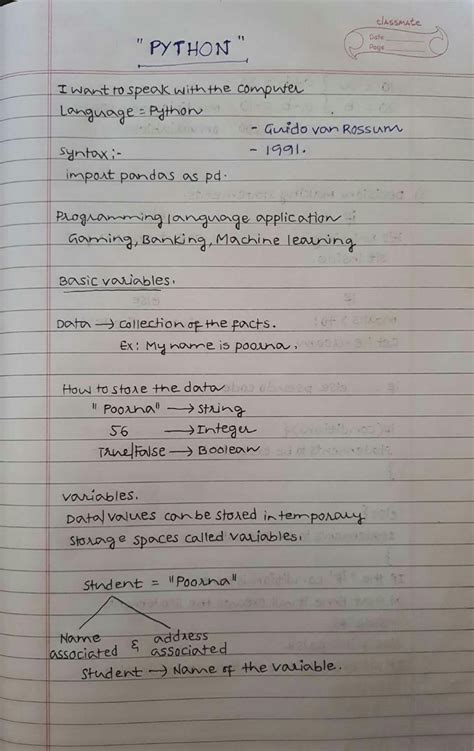 classmate
Date
Page
"PYTHON"
I want to speak with the computer
Language = Python
- Guido van Rossum
- 1991.
Syntax:-
import pandas as pd.
Programming language application :-
Gaming, Banking, Machine learning
Basic variables.
Data → Collection of the facts.
Ex: My name is poorna.
How to store the data
"Poorna" → String
56 → Integer
True/False → Boolean
Variables.
Data/values can be stored in temporary
storage spaces called variables.
Student = "Poorna"
Name & address
associated associated
Student → Name of the variable.